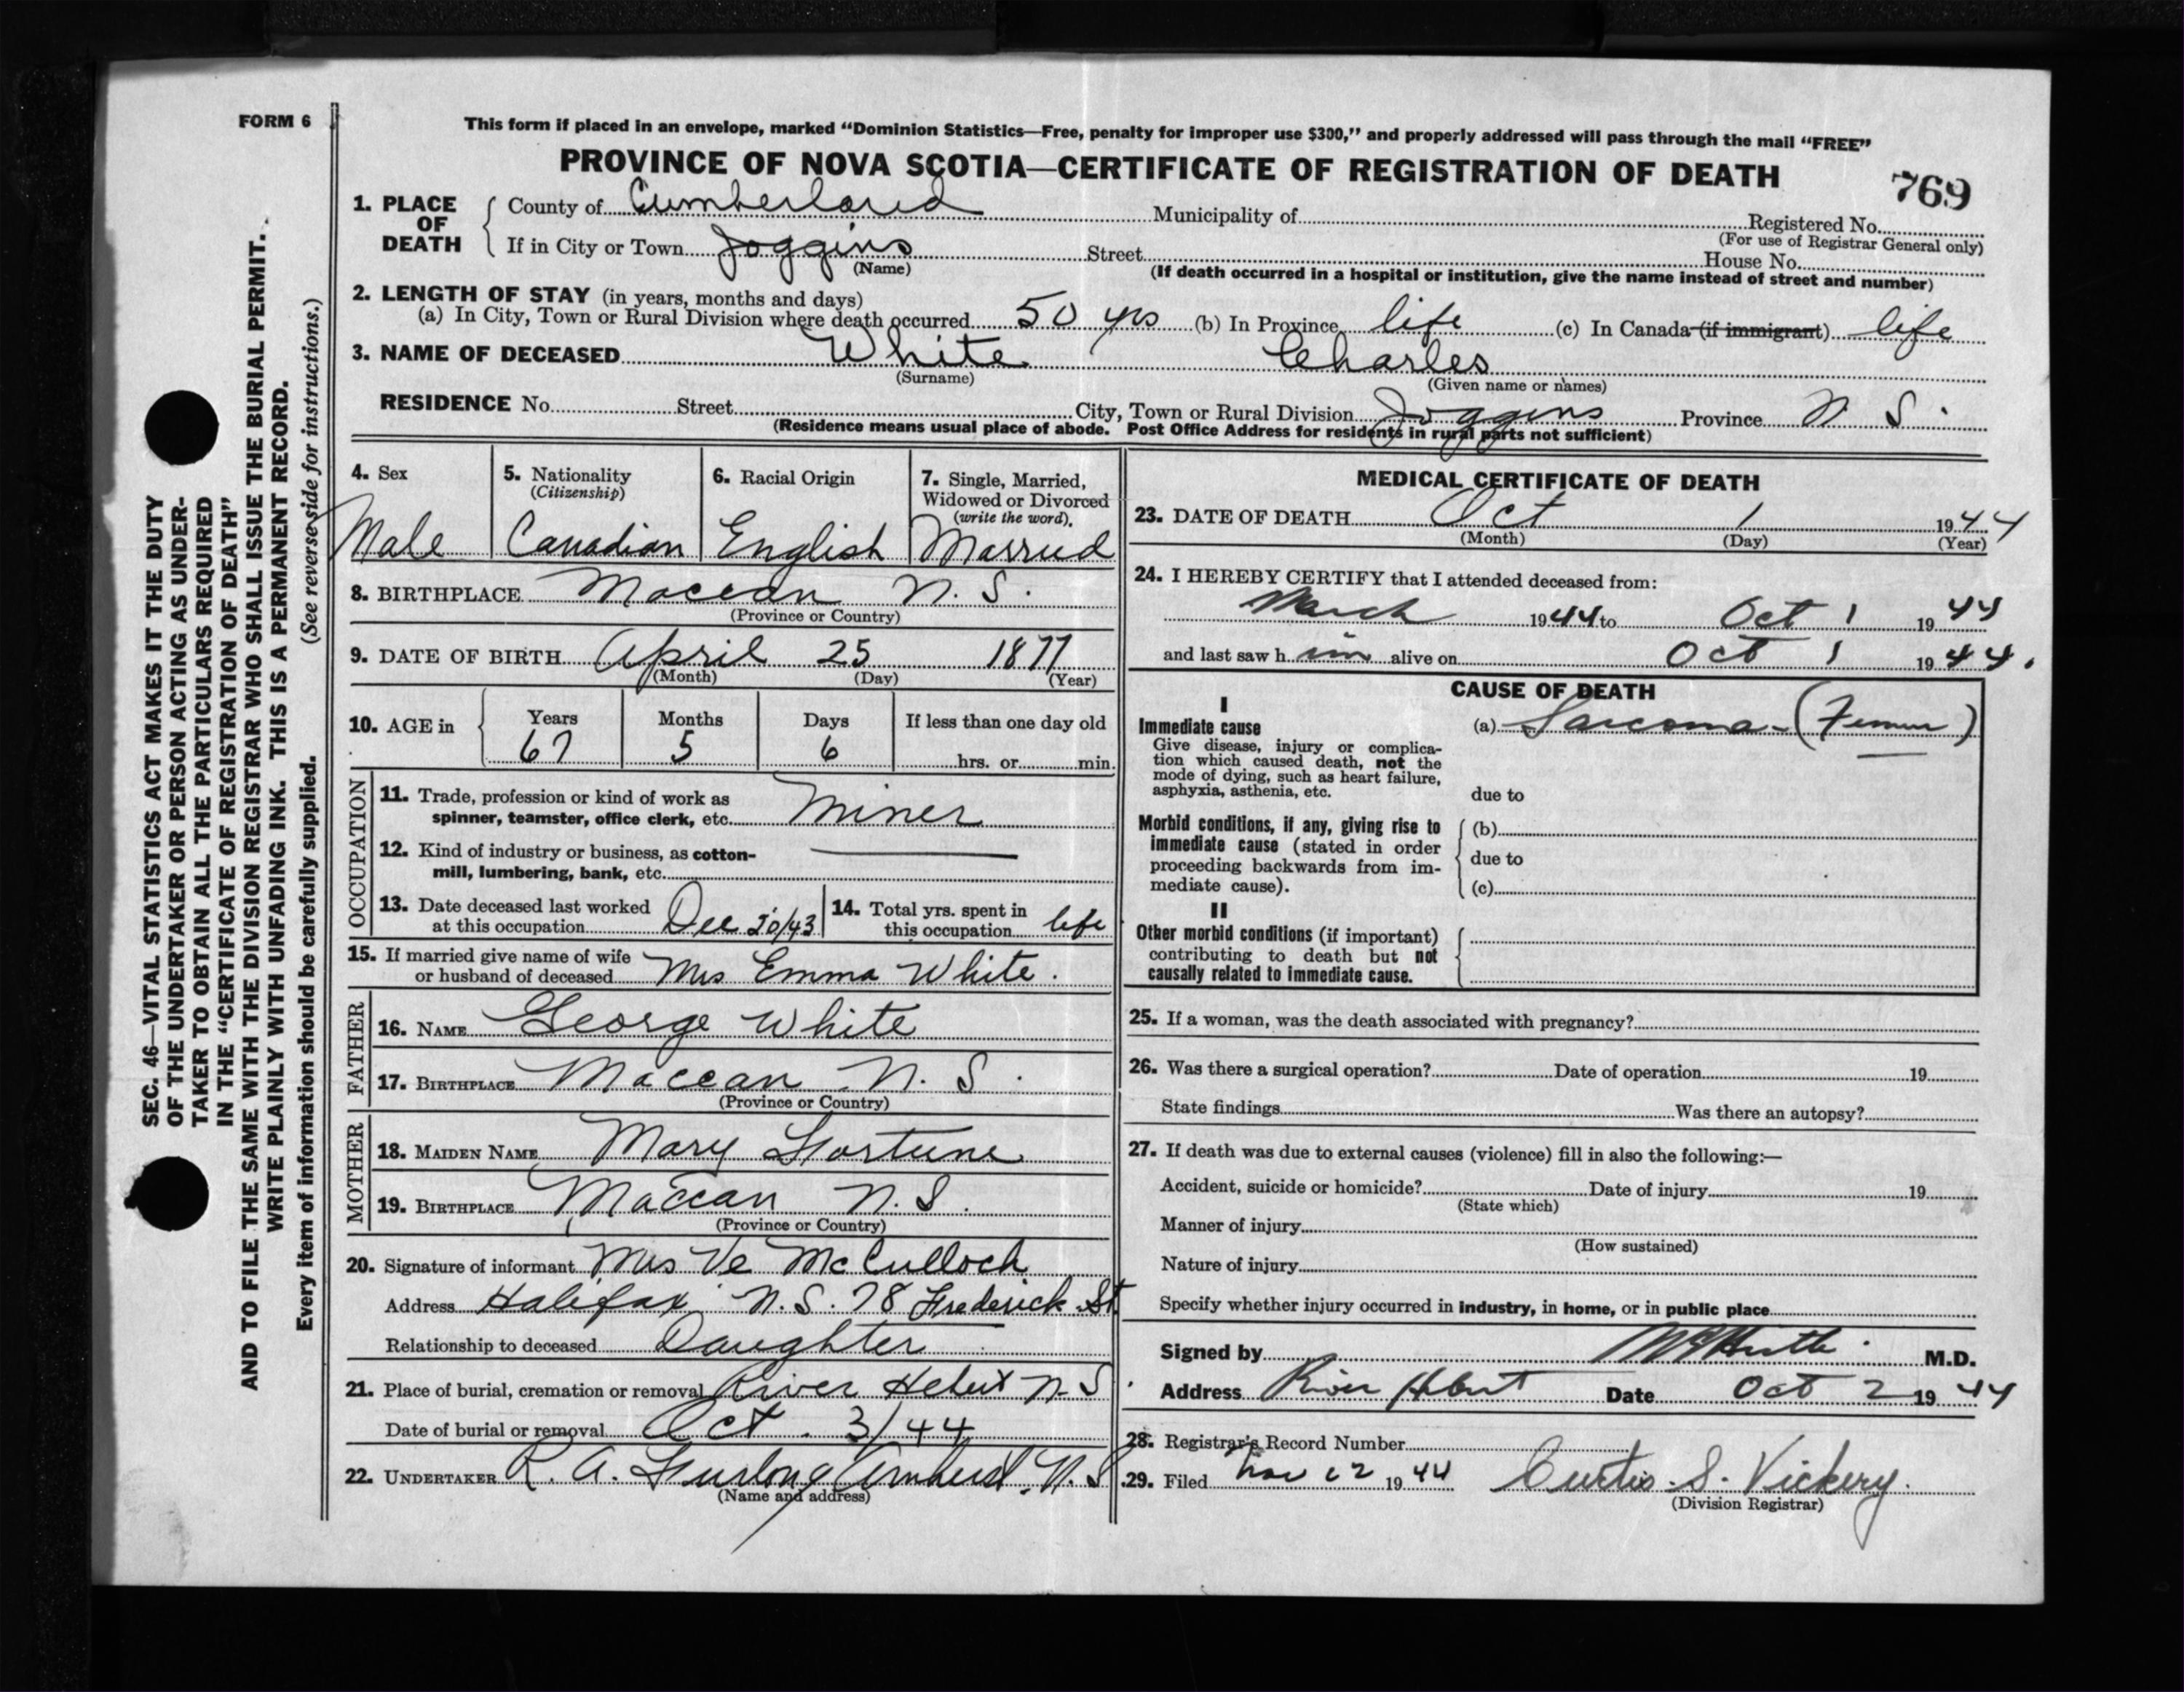 FORM 6
This form if placed in an envelope, marked “Dominion Statistics—Free, penalty for improper use $300,” and properly addressed will pass through the mail “FREE”
PROVINCE OF NOVA SCOTIA—CERTIFICATE OF REGISTRATION OF DEATH
769
1. PLACE OF DEATH
County of Cumberland Municipality of Registered No.
(For use of Registrar General only)
If in City or Town Joggins Street House No.
(Name) (If death occurred in a hospital or institution, give the name instead of street and number)
2. LENGTH OF STAY (in years, months and days)
(a) In City, Town or Rural Division where death occurred 50 yrs (b) In Province life (c) In Canada (if immigrant) life
3. NAME OF DECEASED White Charles
(Surname) (Given name or names)
RESIDENCE No. Street City, Town or Rural Division Joggins Province N. S.
(Residence means usual place of abode. Post Office Address for residents in rural parts not sufficient)
4. Sex
Male
5. Nationality
(Citizenship)
Canadian
6. Racial Origin
English
7. Single, Married,
Widowed or Divorced
(write the word).
Married
8. BIRTHPLACE Maccan N. S.
(Province or Country)
9. DATE OF BIRTH April 25 1877
(Month) (Day) (Year)
10. AGE in Years Months Days If less than one day old
67 5 6 hrs. or min.
OCCUPATION
11. Trade, profession or kind of work as
spinner, teamster, office clerk, etc. Miner
12. Kind of industry or business, as cotton-
mill, lumbering, bank, etc.
13. Date deceased last worked
at this occupation Dec 20/43
14. Total yrs. spent in
this occupation life
15. If married give name of wife
or husband of deceased Mrs Emma White.
FATHER
16. NAME George White
17. BIRTHPLACE Maccan N. S.
(Province or Country)
MOTHER
18. MAIDEN NAME Mary Fortune
19. BIRTHPLACE Maccan N. S.
(Province or Country)
20. Signature of informant Mrs Ve McCulloch
Address Halifax, N. S. 78 Frederick St
Relationship to deceased Daughter
21. Place of burial, cremation or removal River Hebert N. S
Date of burial or removal Oct. 3/44
22. UNDERTAKER R. A. Furlong Amherst. N. S
(Name and address)
MEDICAL CERTIFICATE OF DEATH
23. DATE OF DEATH Oct 1 1944
(Month) (Day) (Year)
24. I HEREBY CERTIFY that I attended deceased from:
March 1944 to Oct 1 1944
and last saw him alive on Oct 1 1944.
CAUSE OF DEATH
I
Immediate cause
Give disease, injury or complica-
tion which caused death, not the
mode of dying, such as heart failure,
asphyxia, asthenia, etc.
(a) Sarcoma - (Femur)
due to
Morbid conditions, if any, giving rise to
immediate cause (stated in order
proceeding backwards from im-
mediate cause).
(b)
due to
(c)
II
Other morbid conditions (if important)
contributing to death but not
causally related to immediate cause.
25. If a woman, was the death associated with pregnancy?
26. Was there a surgical operation? Date of operation 19
State findings Was there an autopsy?
27. If death was due to external causes (violence) fill in also the following:—
Accident, suicide or homicide? Date of injury 19
(State which)
Manner of injury
(How sustained)
Nature of injury
Specify whether injury occurred in industry, in home, or in public place
Signed by M.D.
Address River Hebert Date Oct 2 1944
28. Registrar's Record Number
29. Filed Nov 1944 Curtis. S. Vickery.
(Division Registrar)
SEC. 46—VITAL STATISTICS ACT MAKES IT THE DUTY
OF THE UNDERTAKER OR PERSON ACTING AS UNDER-
TAKER TO OBTAIN ALL THE PARTICULARS REQUIRED
IN THE “CERTIFICATE OF REGISTRATION OF DEATH”
AND TO FILE THE SAME WITH THE DIVISION REGISTRAR WHO SHALL ISSUE THE BURIAL PERMIT.
WRITE PLAINLY WITH UNFADING INK. THIS IS A PERMANENT RECORD.
Every item of information should be carefully supplied. (See reverse side for instructions.)